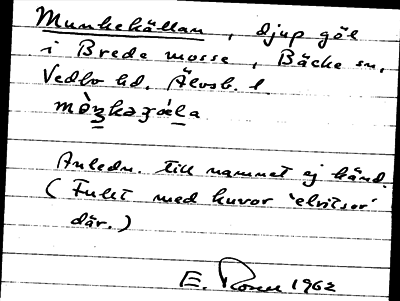 Munkekällan, djup göl
i Brede mosse, Bäcke sn,
Vedbo hd. Älvsb. l.
Anledn. till namnet ej känd.
(Fullt med huvor 'elvitsor'
där.)
E. 1962